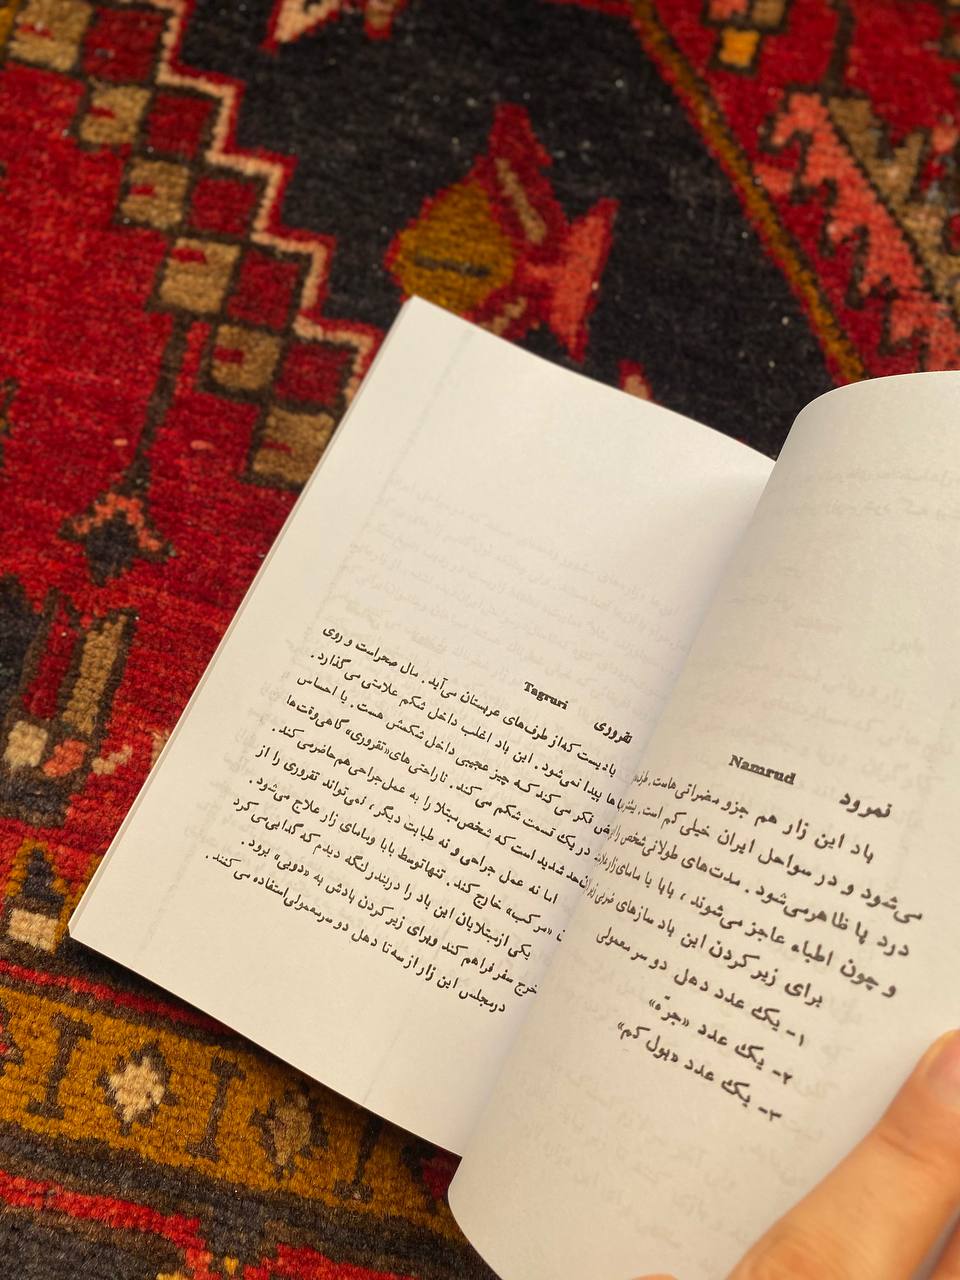 نمرود Namrud
باد این زار هم جزو مضراتی‌هاست.
می‌شود و در سواحل ایران خیلی کم است.
درد پا ظاهر می‌شود. مدت‌های طولانی شخص را
و چون اطباء عاجز می‌شوند، بابا یا مامای زار
برای زیر کردن این باد سازهای ضربی زیر
۱- یک عدد دهل دو سر معمولی
۲- یک عدد «جرّه»
۳- یک عدد «پول کم»
تقروری Tagruri
بادیست که از طرف‌های عربستان می‌آید. مال صحراست و روی
پیدا نمی‌شود. این باد اغلب داخل شکم علامتی می‌گذارد.
فکر می‌کند که چیز عجیبی داخل شکمش هست. یا احساس
در یک قسمت شکم می‌کند. ناراحتی‌های «تقروری» گاهی وقت‌ها
شدید است که شخص مبتلا را به عمل جراحی هم حاضر می‌کند.
اما نه عمل جراحی و نه طبابت دیگر، نمی‌تواند تقروری را از
«مرکب» خارج کند. تنها توسط بابا و مامای زار علاج می‌شود.
یکی از مبتلایان این باد را در بندر لنگه دیدم که گدایی می‌کرد
خرج سفر فراهم کند و برای زیر کردن بادش به «دوبی» برود.
در مجلس این زار از سه تا دهل دو سر معمولی استفاده می‌کنند.